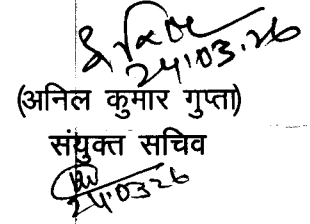 24.03.26
(अनिल कुमार गुप्ता)
संयुक्त सचिव
24.03.26